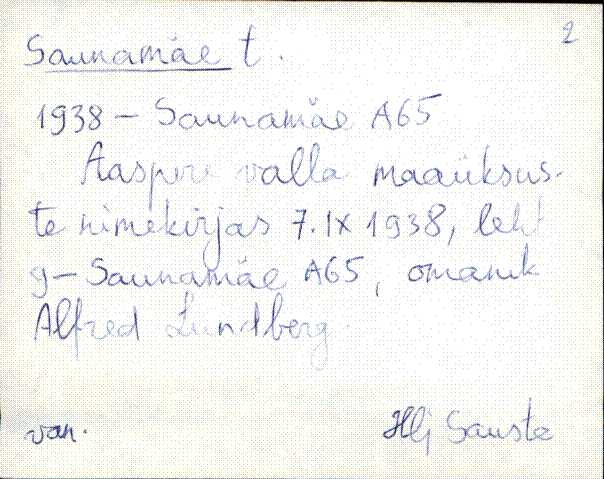 2
Saunamäe t.
1938 – Saunamäe A65
Aaspere valla maaüksus-
te nimekirjas 7.IX 1938, leht
9 – Saunamäe A65, omanik
Alfred Lundberg.
van. Hlj Sauste